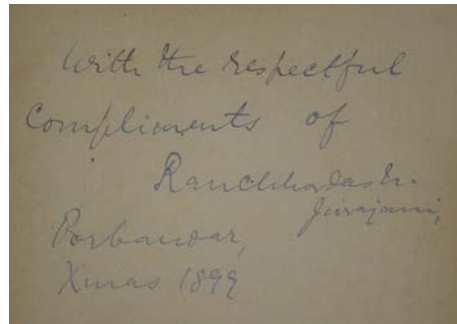 With the respectful
Compliments of
Ranchhordas N.
Jivajani,
Porbandar,
Xmas 1899